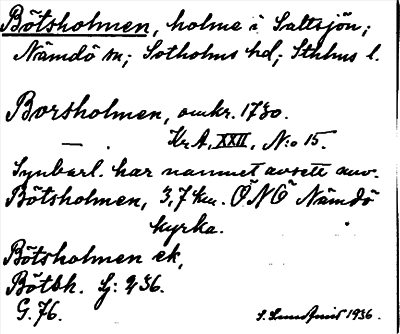 Bötsholmen, holme i Saltsjön;
Nämdö sn; Sotholms hd; Sthlms l.
Borsholmen, omkr. 1730.
— . Kr A, XXII, N:o 15.
Synbarl. har namnet avsett nuv.
Bötsholmen, 3,7 km. ÖNÖ Nämdö
kyrka.
Bötsholmen ek,
Bötsh. Lj: 236.
G. 76.
1936.